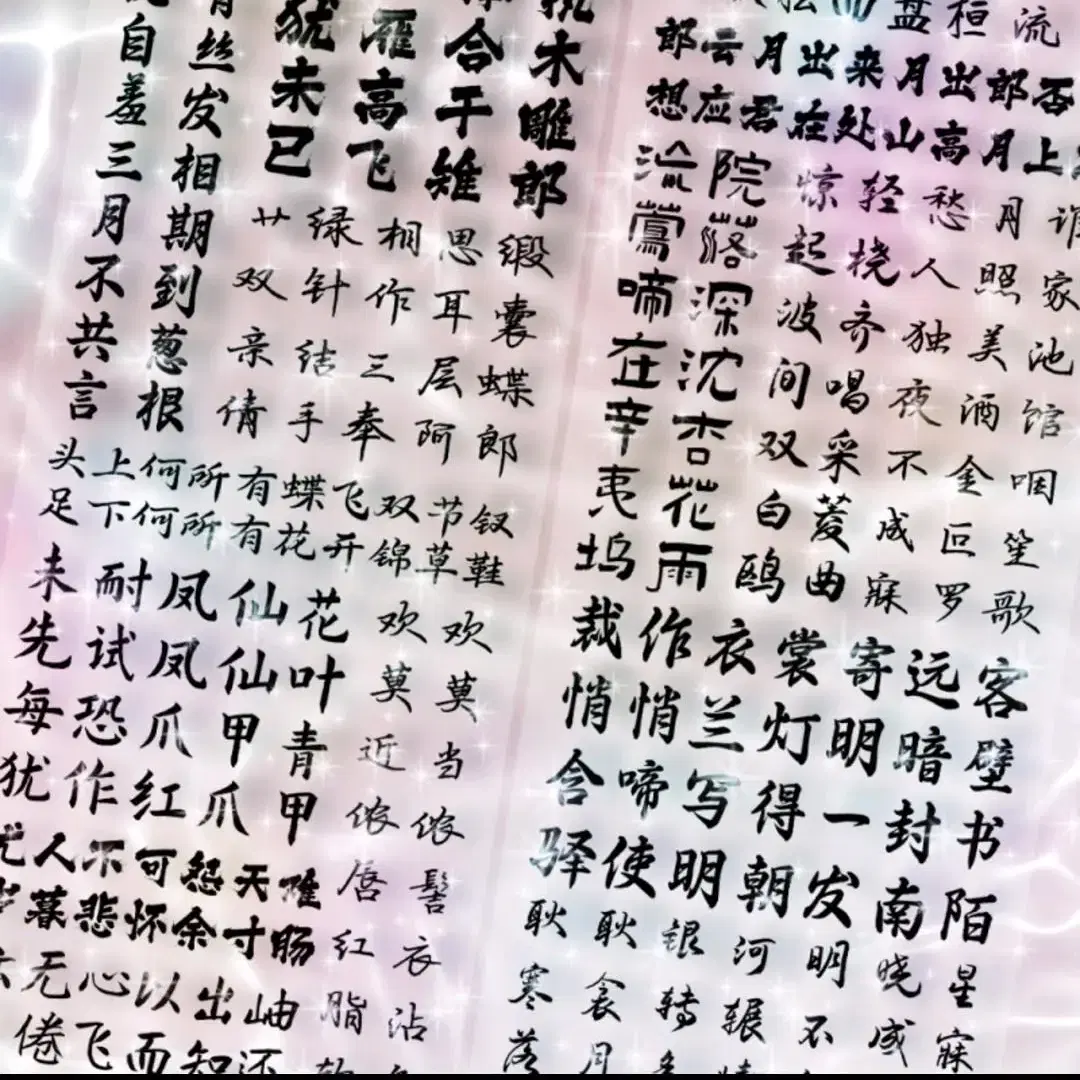 郎云月出来月出郎否
想应君在处山高月上
谁家池馆咽笙歌
月照美酒金叵罗
愁人独夜不成寐
轻桡齐唱采菱曲
惊起波间双白鸥
院落深沈杏花雨
流莺啼在辛夷坞
裁作衣裳寄远客
悄悄兰灯明暗壁
含啼写得一封书
驿使明朝发南陌
耿耿银河明晓星
寒衾转辗不成寐
落月
木雕郎
合干雉
雁高飞
犹未已
丝发相期到葱根
自羞三月不共言
艹绿相思缎
双针作耳囊
亲结三层蝶
倩手奉阿郎
头上何所有蝶飞双节钗
足下何所有花开锦草鞋
未耐凤仙花
先试凤仙叶
每恐爪甲青
犹作红爪甲
欢莫当侬髻衣沾
欢莫近侬唇红脂
人不可怨天难
暮悲怀余寸肠
无心以出岫
倦飞而知还